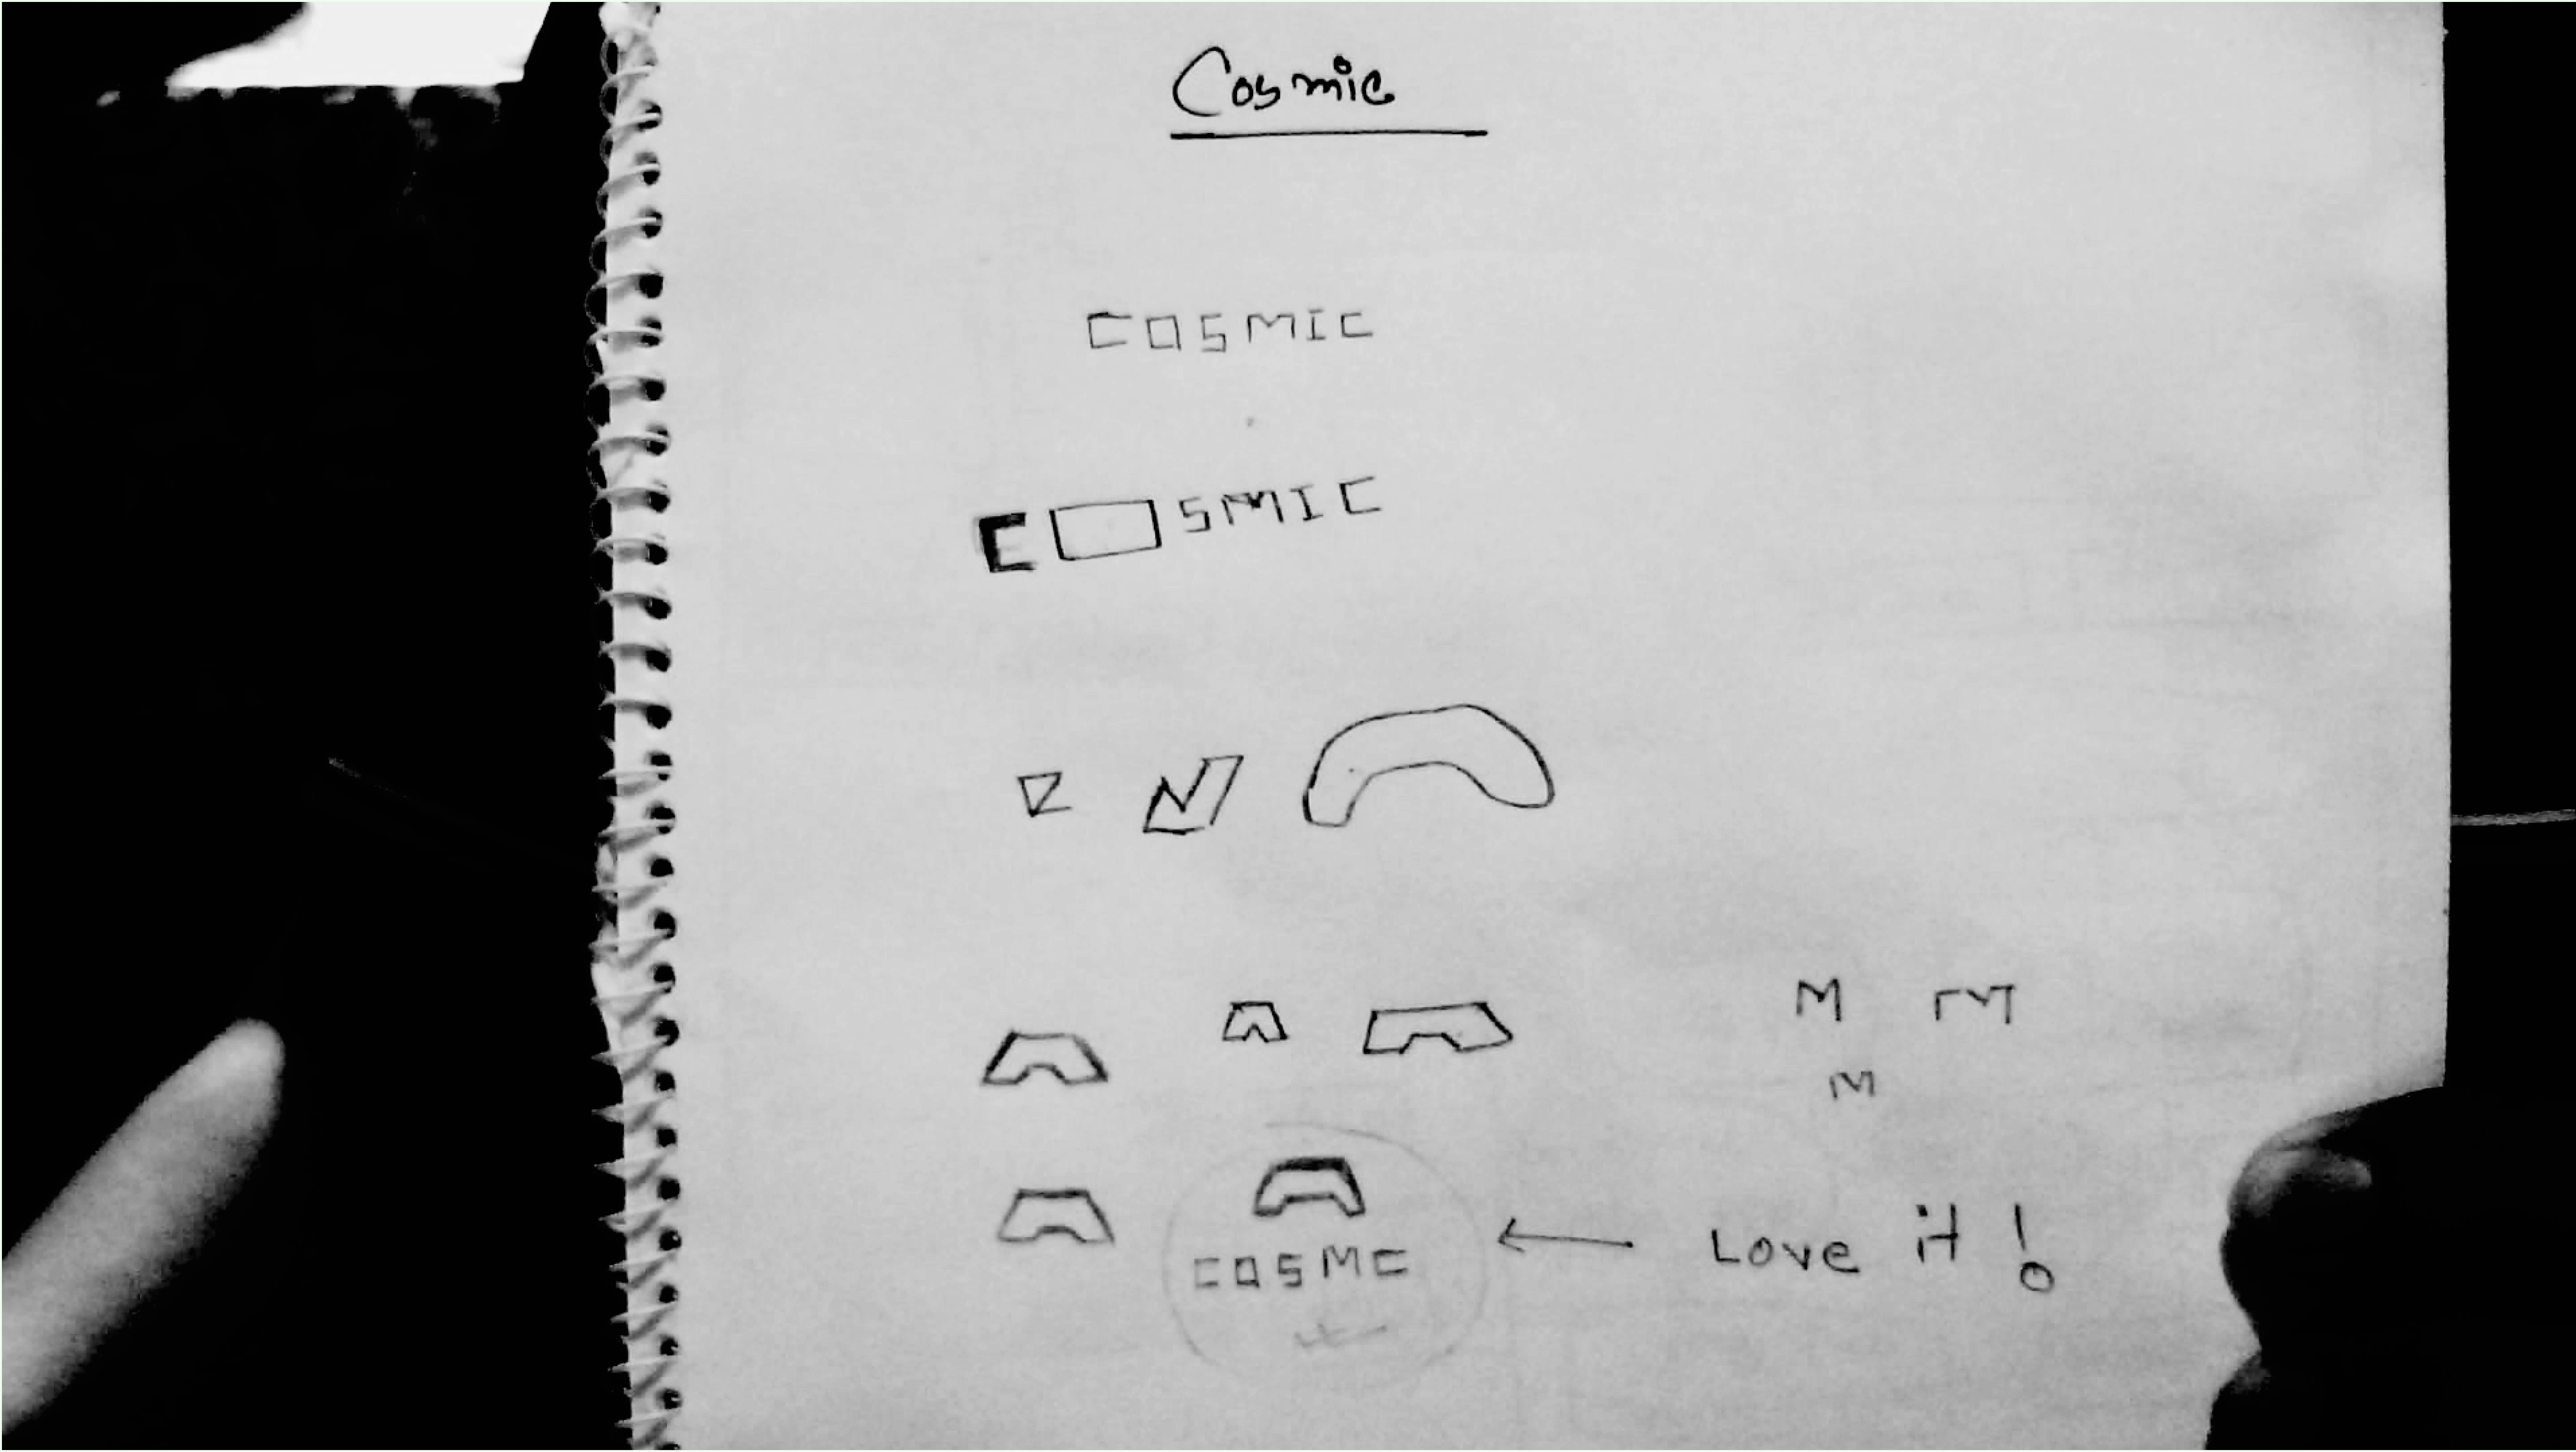 Cosmic
COSMIC
COSMIC
M M
M
COSMC
Love it!